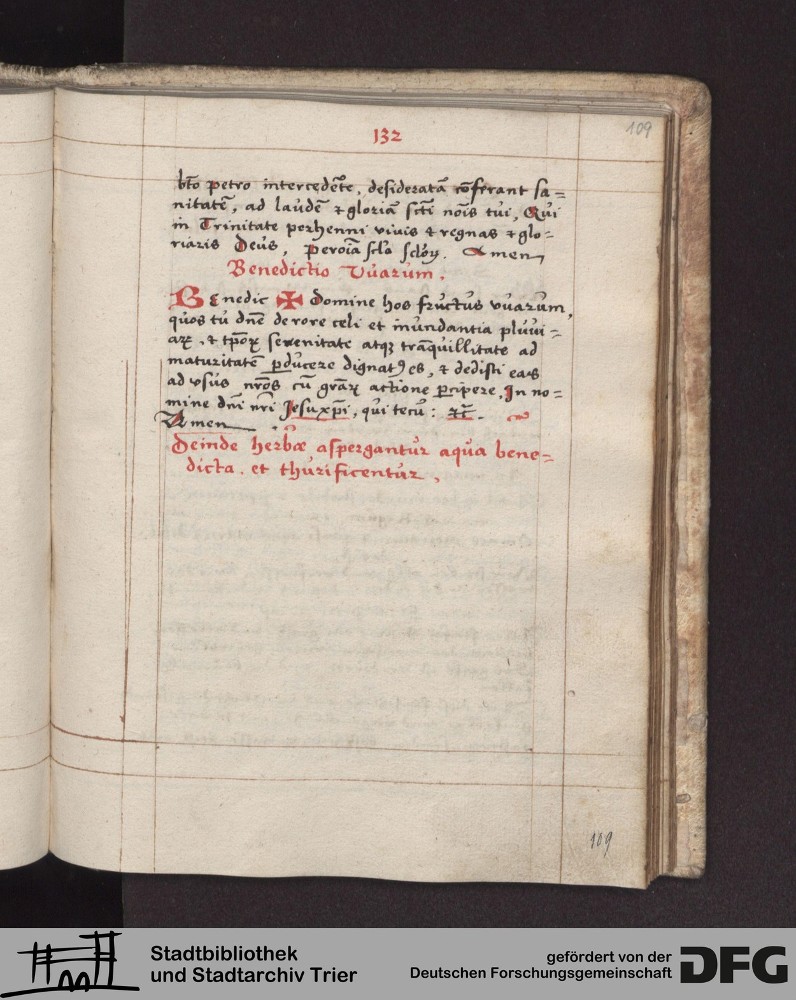 132
109
bto petro intercedēte, desideratā cōferant sa=
nitatē, ad laudē & gloriā scti nōis tui, Qui
in Trinitate perhenni viuis & regnas & glo=
riaris Deus, per oīa scla sclōꝝ. Amen
Benedictio Vuarum.
Benedic ✠ Domine hos fructus vuarum,
quos tu dnē de rore celi et inundantia pluui=
aꝝ, & tpoꝝ serenitate atqꝫ trāquillitate ad
maturitatē ꝑducere dignatꝰ es, & dedisti eas
ad vsus nrōs cū grāꝝ actione ꝑcipere, In no=
mine dni nri Jesu xpi, qui tecū: &c.
Amen
Deinde herbæ aspergantur aqua bene=
dicta. et thurificentur.
109
Stadtbibliothek
und Stadtarchiv Trier
gefördert von der
Deutschen Forschungsgemeinschaft
DFG